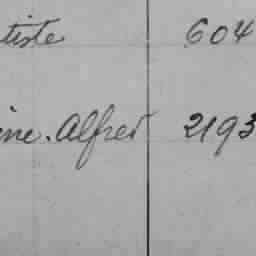 tiste 604
ine. Alfred 2193